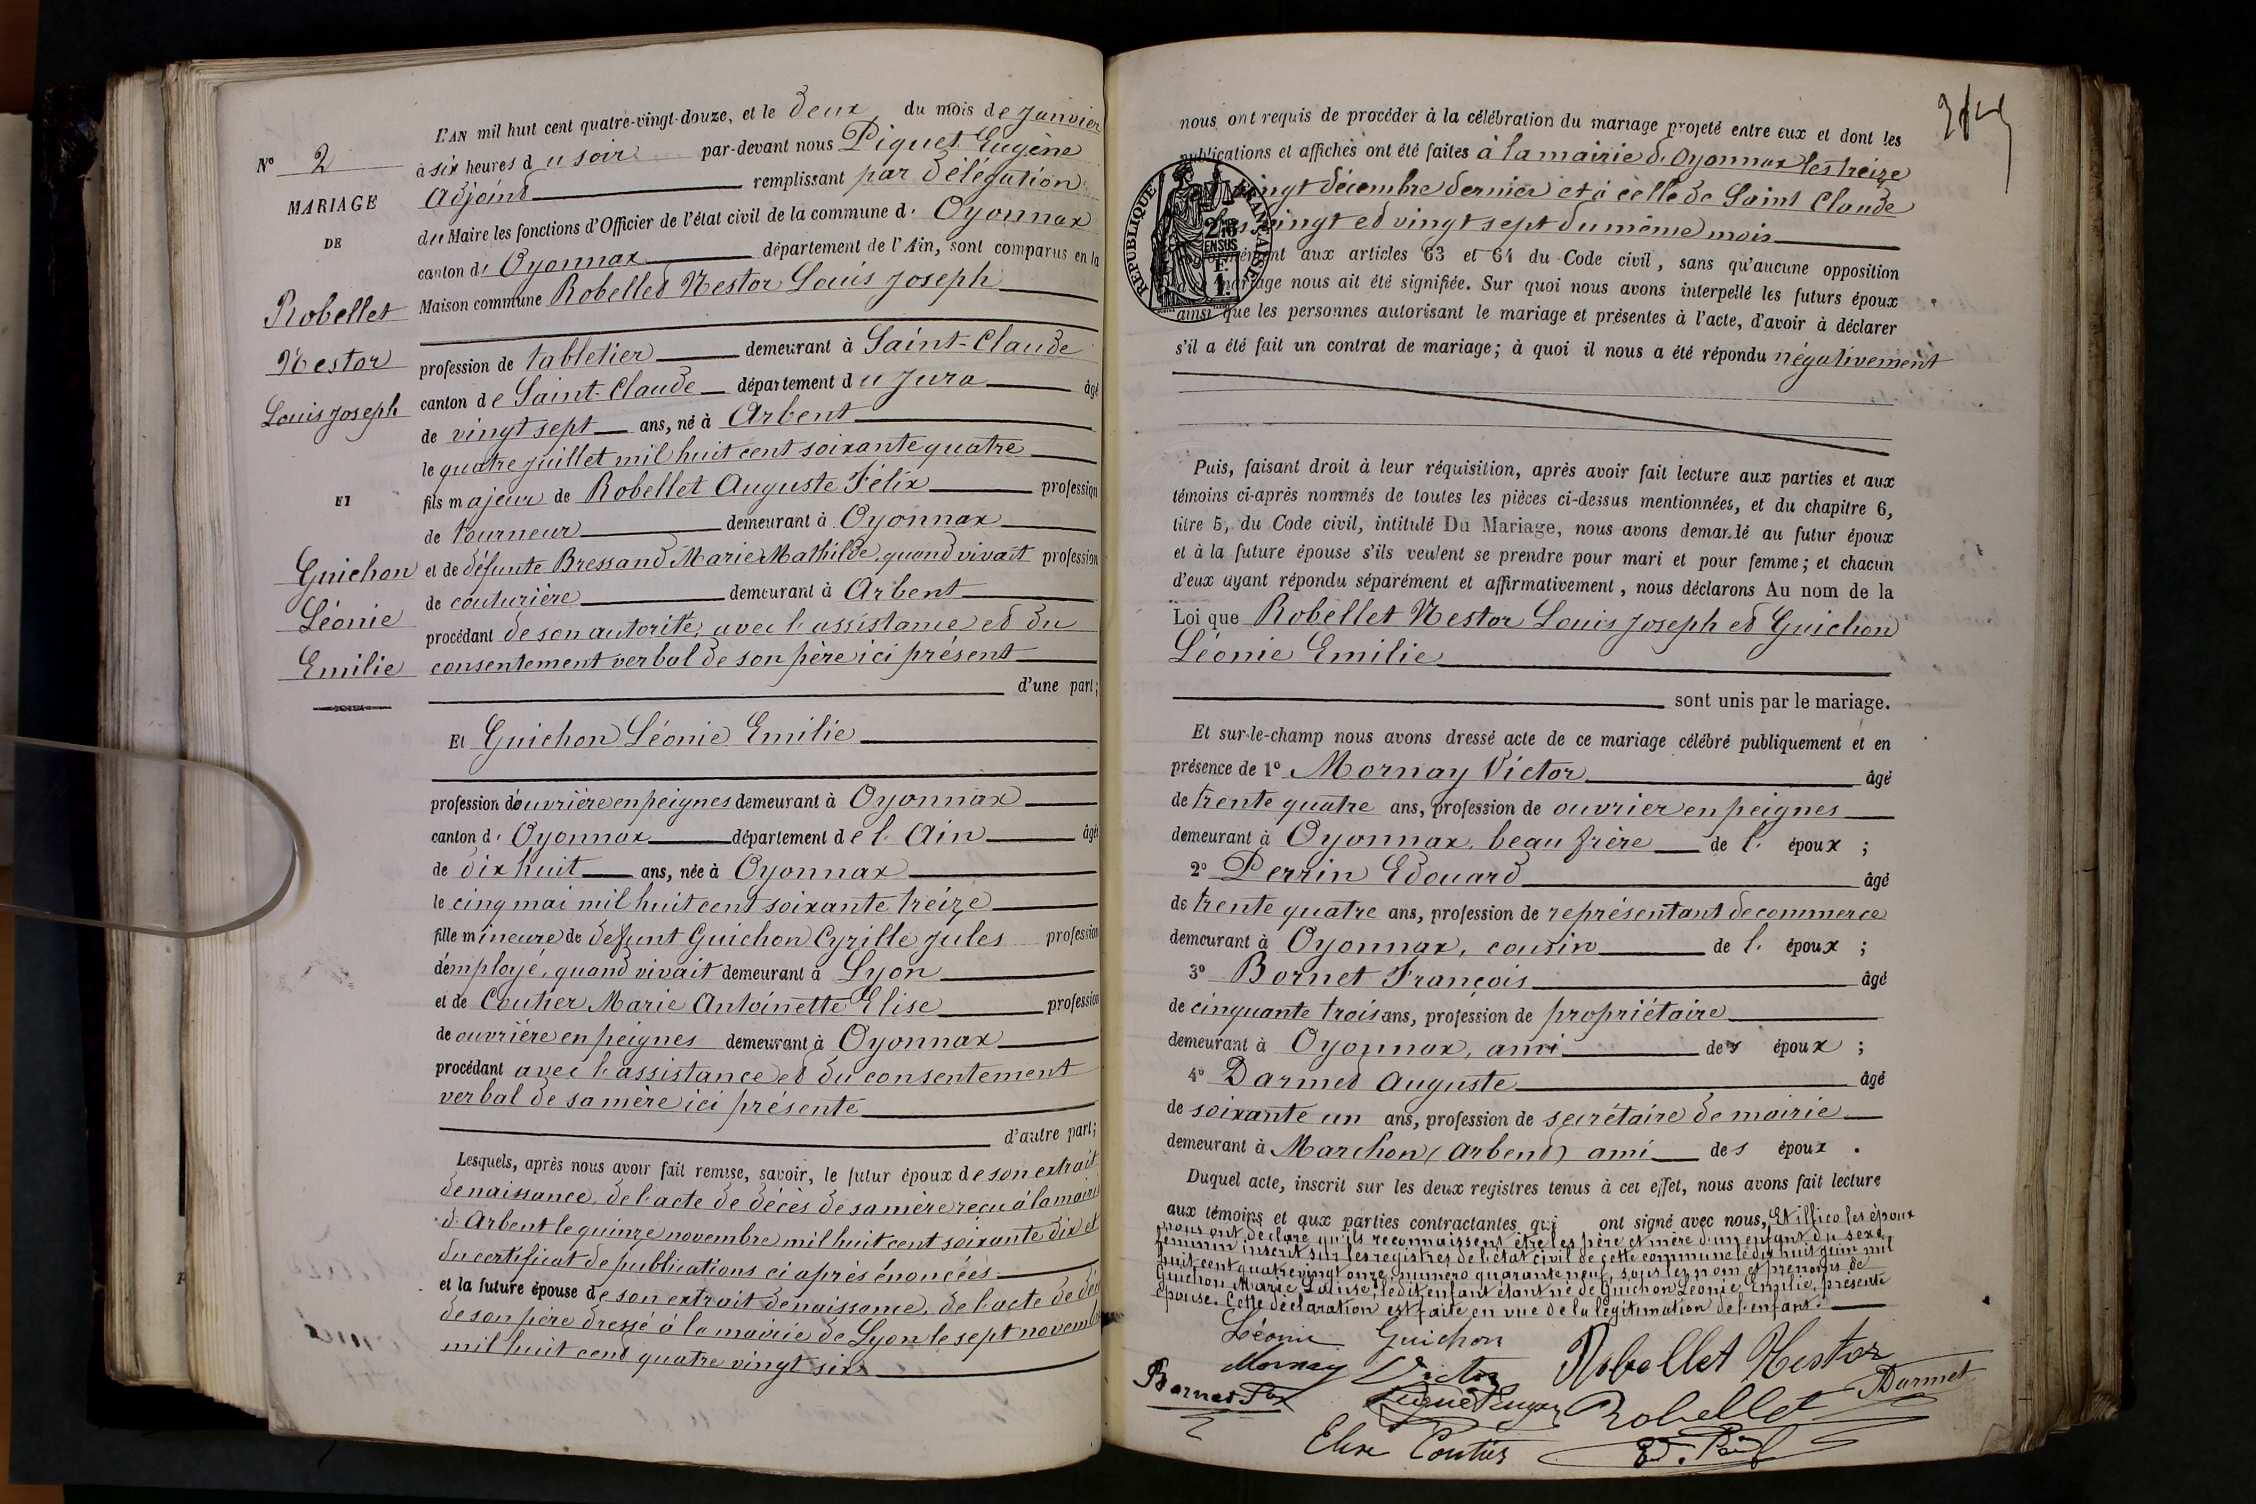 L'AN mil huit cent quatre-vingt-douze, et le deux du mois de janvier
à six heures du soir par-devant nous Piquet Eugène
Adjoint remplissant par délégation
du Maire les fonctions d'Officier de l'état civil de la commune d' Oyonnax
canton d' Oyonnax département de l'Ain, sont comparus en la
Maison commune Robellet Nestor Louis Joseph
profession de tabletier demeurant à Saint-Claude
canton de Saint-Claude département du Jura âgé
de vingt sept ans, né à Arbent
le quatre juillet mil huit cent soixante quatre
fils majeur de Robellet Auguste Félix profession
de tourneur demeurant à Oyonnax
et de défunte Bressand Marie Mathilde, quand vivait profession
de couturière demeurant à Arbent
procédant de son autorité, avec l'assistance et du
consentement verbal de son père ici présent
d'une part;
Et Guichon Léonie Emilie
profession d'ouvrière en peignes demeurant à Oyonnax
canton d' Oyonnax département de l'Ain âgée
de dix huit ans, née à Oyonnax
le cinq mai mil huit cent soixante treize
fille mineure de defunt Guichon Cyrille Jules profession
d'employé, quand vivait demeurant à Lyon
et de Coutier Marie Antoinette Elise profession
de ouvrière en peignes demeurant à Oyonnax
procédant avec l'assistance et du consentement
verbal de sa mère ici présente
d'autre part;
Lesquels, après nous avoir fait remise, savoir, le futur époux de son extrait
de naissance, de l'acte de décès de sa mère reçu à la mairie
d'Arbent le quinze novembre mil huit cent soixante dix et
du certificat de publications ci après énoncées
et la future épouse de son extrait de naissance, de l'acte de
de son père dressé à la mairie de Lyon le sept novembre
mil huit cent quatre vingt six
N° 2
MARIAGE
DE
Robellet
Nestor
Louis Joseph
ET
Guichon
Léonie
Emilie
nous ont requis de procéder à la célébration du mariage projeté entre eux et dont les
publications et affiches ont été faites à la mairie d'Oyonnax les treize
vingt décembre dernier et à celle de Saint Claude
les vingt et vingt sept du même mois
aux articles 63 et 64 du Code civil, sans qu'aucune opposition
mariage nous ait été signifiée. Sur quoi nous avons interpellé les futurs époux
ainsi que les personnes autorisant le mariage et présentes à l'acte, d'avoir à déclarer
s'il a été fait un contrat de mariage; à quoi il nous a été répondu négativement
RÉPUBLIQUE FRANÇAISE
EN SUS
F.
1.
Puis, faisant droit à leur réquisition, après avoir fait lecture aux parties et aux
témoins ci-après nommés de toutes les pièces ci-dessus mentionnées, et du chapitre 6,
titre 5, du Code civil, intitulé Du Mariage, nous avons demandé au futur époux
et à la future épouse s'ils veulent se prendre pour mari et pour femme; et chacun
d'eux ayant répondu séparément et affirmativement, nous déclarons Au nom de la
Loi que Robellet Nestor Louis Joseph et Guichon
Léonie Emilie
sont unis par le mariage.
Et sur-le-champ nous avons dressé acte de ce mariage célébré publiquement et en
présence de 1° Mornay Victor âgé
de trente quatre ans, profession de ouvrier en peignes
demeurant à Oyonnax, beau frère de l' époux ;
2° Perrin Edouard âgé
de trente quatre ans, profession de représentant de commerce
demeurant à Oyonnax, cousin de l' époux ;
3° Bornet François âgé
de cinquante trois ans, profession de propriétaire
demeurant à Oyonnax, ami des époux ;
4° Darmet Auguste âgé
de soixante un ans, profession de secrétaire de mairie
demeurant à Marchon (Arbent) ami des époux .
Duquel acte, inscrit sur les deux registres tenus à cet effet, nous avons fait lecture
aux témoins et aux parties contractantes qui ont signé avec nous, Et illico les époux
nous ont déclaré qu'ils reconnaissent être les père et mère d'un enfant du sexe
féminin inscrit sur les registres de l'état civil de cette commune le dix huit juin mil
huit cent quatre vingt onze, numéro quarante neuf, sous les nom et prénoms de
Guichon Marie Louise, ledit enfant étant né de Guichon Léonie Emilie, présente
épouse. Cette déclaration est faite en vue de la légitimation de l'enfant.
Léonie Guichon
Mornay Victor Robellet Nestor
Bornet Fçois Piquet Eugène Robellet Darmet
Elise Coutier